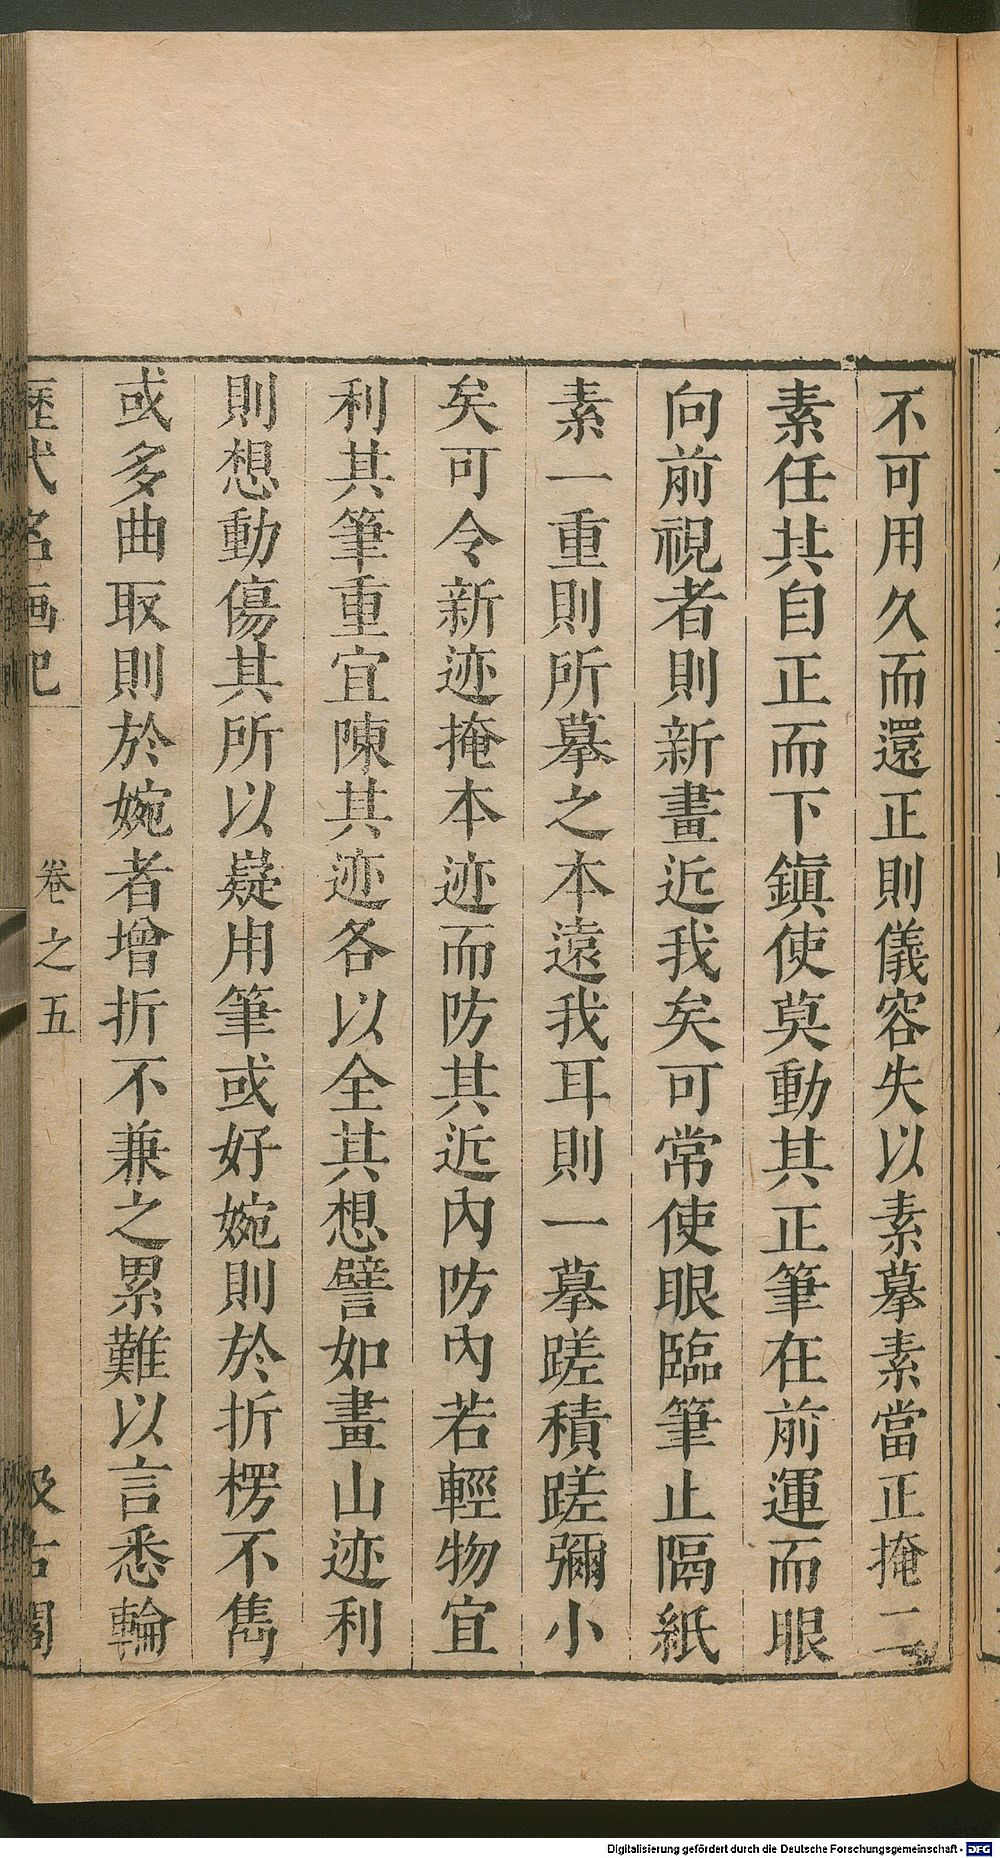 不可用久而還正則儀容失以素摹素當正掩二
素任其自正而下鎭使莫動其正筆在前運而眼
向前視者則新畫近我矣可常使眼臨筆止隔紙
素一重則所摹之本遠我耳則一摹蹉積蹉彌小
矣可令新迹掩本迹而防其近內防內若輕物宜
利其筆重宜陳其迹各以全其想譬如畫山迹利
則想動傷其所以嶷用筆或好婉則於折楞不雋
或多曲取則於婉者增折不兼之累難以言悉輪
歷代名画記
卷之五
汲古閣
Digitalisierung gefördert durch die Deutsche Forschungsgemeinschaft - DFG